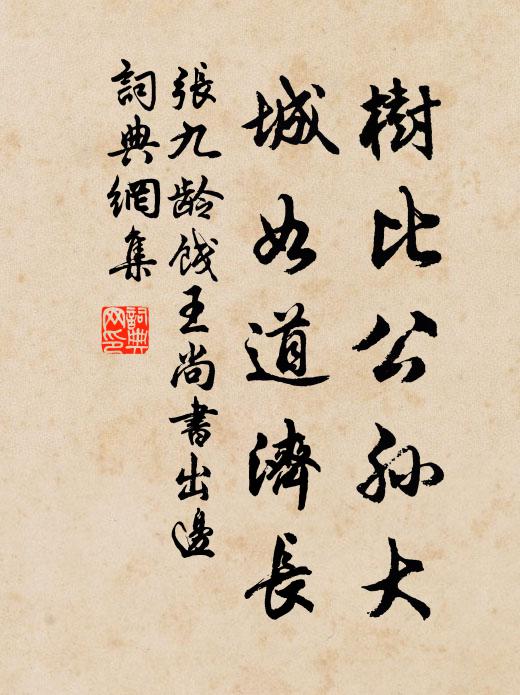 樹比公孫大
城如道濟長
張九齡餞王尚書出邊
詞典網集
詞典網印